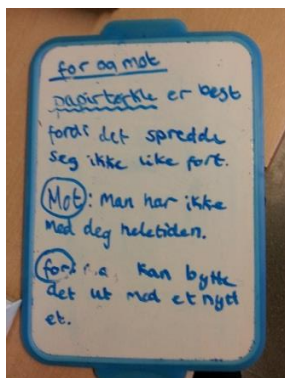 for og mot
papirtørkle er best
fordi det spredde
seg ikke like fort.
Mot: man har ikke
med deg heletiden.
for: kan bytte
det ut med et nytt
et.